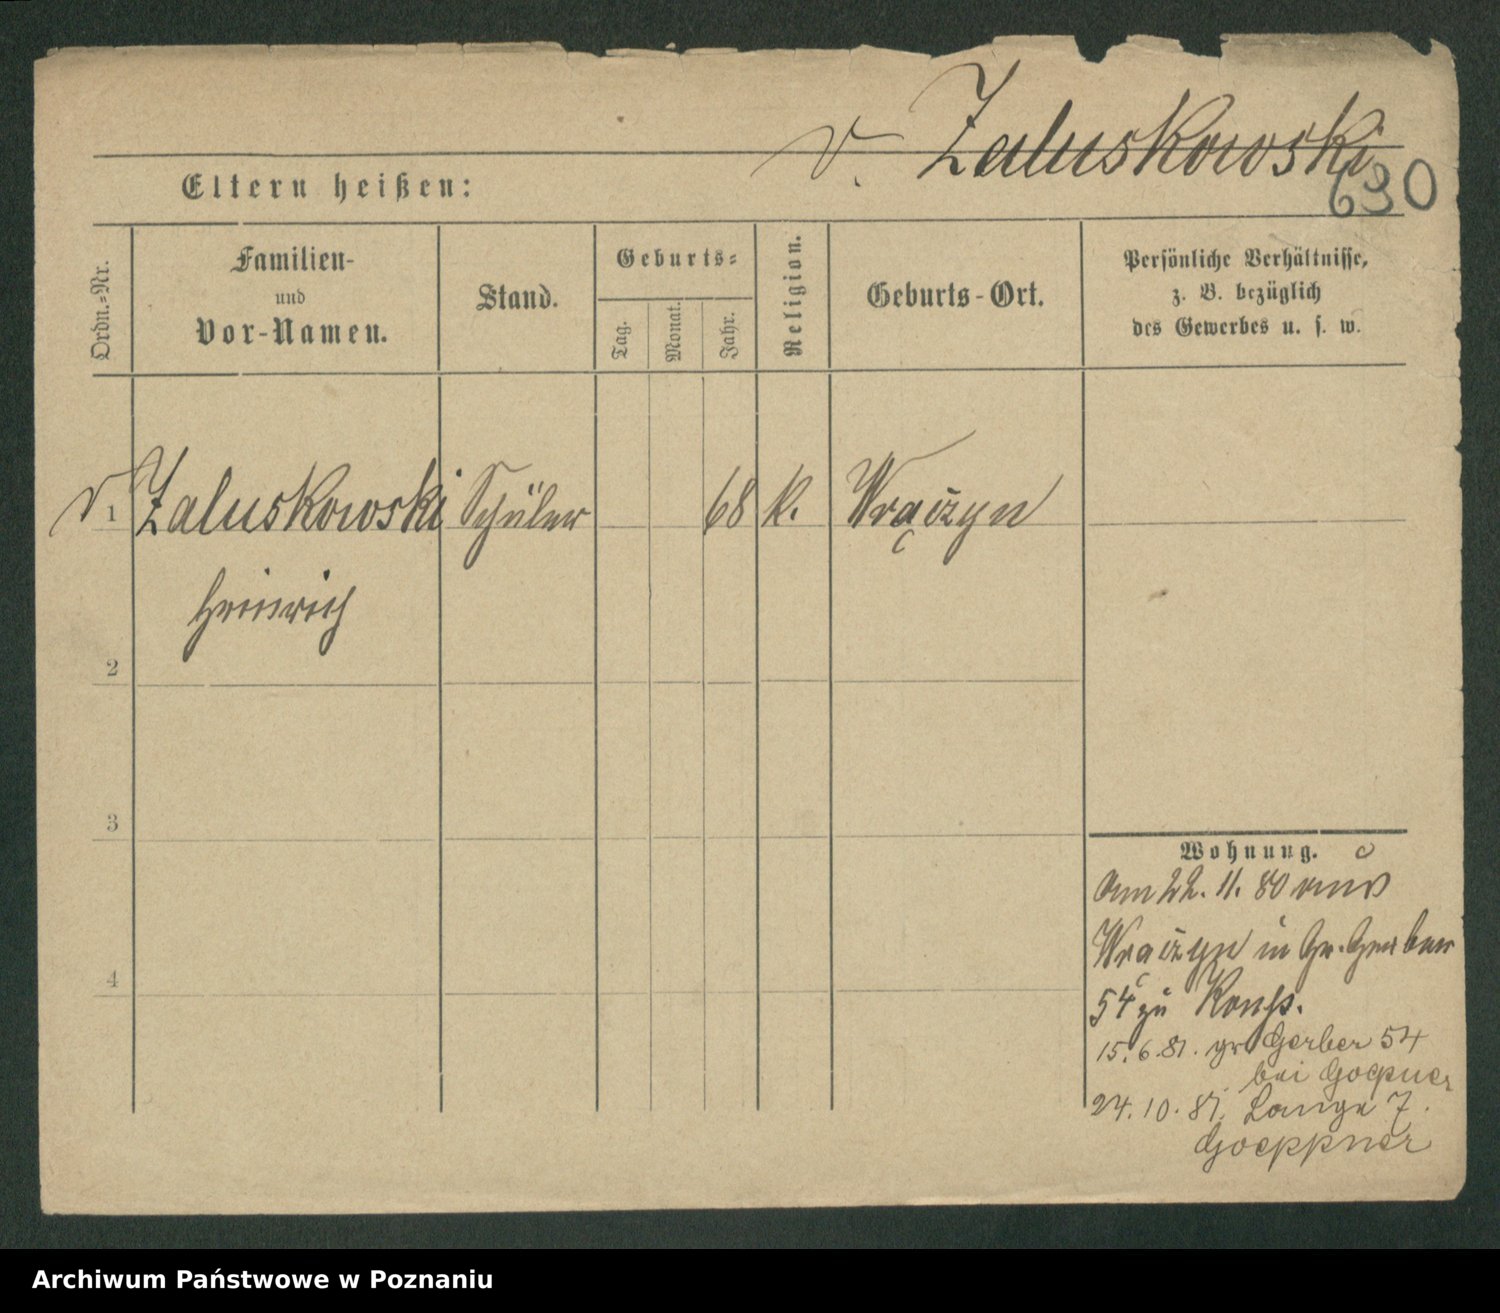 v. Zaluskowski
630
Eltern heißen:
Ordn.=Nr.
Familien-
und
Vor-Namen.
Stand.
Geburts=
Tag.
Monat.
Jahr.
Religion.
Geburts-Ort.
Persönliche Verhältnisse,
z. B. bezüglich
des Gewerbes u. s. w.
1 v. Zaluskowski Schüler 68 k. Wrączyn
Heinrich
2
3
4
Wohnung.
Am 22. 11. 80 aus
Wrączyn in Gr. Gerber
54 zu
15. 6. 81. gr Gerber 54
bei Goepner
24. 10. 81. Lange 7.
Goeppner
Archiwum Państwowe w Poznaniu